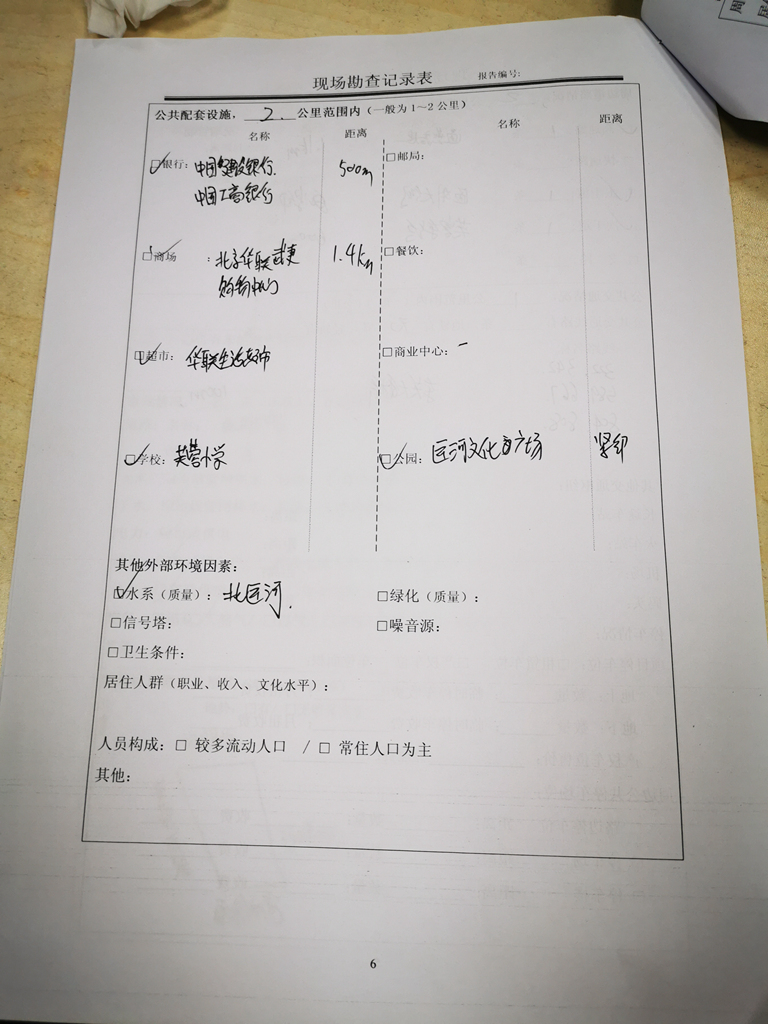 现场勘查记录表 报告编号:
公共配套设施, 2. 公里范围内(一般为1~2公里)
名称 距离 名称 距离
☑银行: 中国建设银行. 500m □邮局:
中国工商银行
☑商场 : 北京华联 1.4km □餐饮:
购物中心
☑超市: 华联生活超市 □商业中心: -
☑学校: 芙蓉小学 ☑公园: 运河文化广场 紧邻
其他外部环境因素:
☑水系(质量): 北运河. □绿化(质量):
□信号塔: □噪音源:
□卫生条件:
居住人群(职业、收入、文化水平):
人员构成: □ 较多流动人口 / □ 常住人口为主
其他:
6